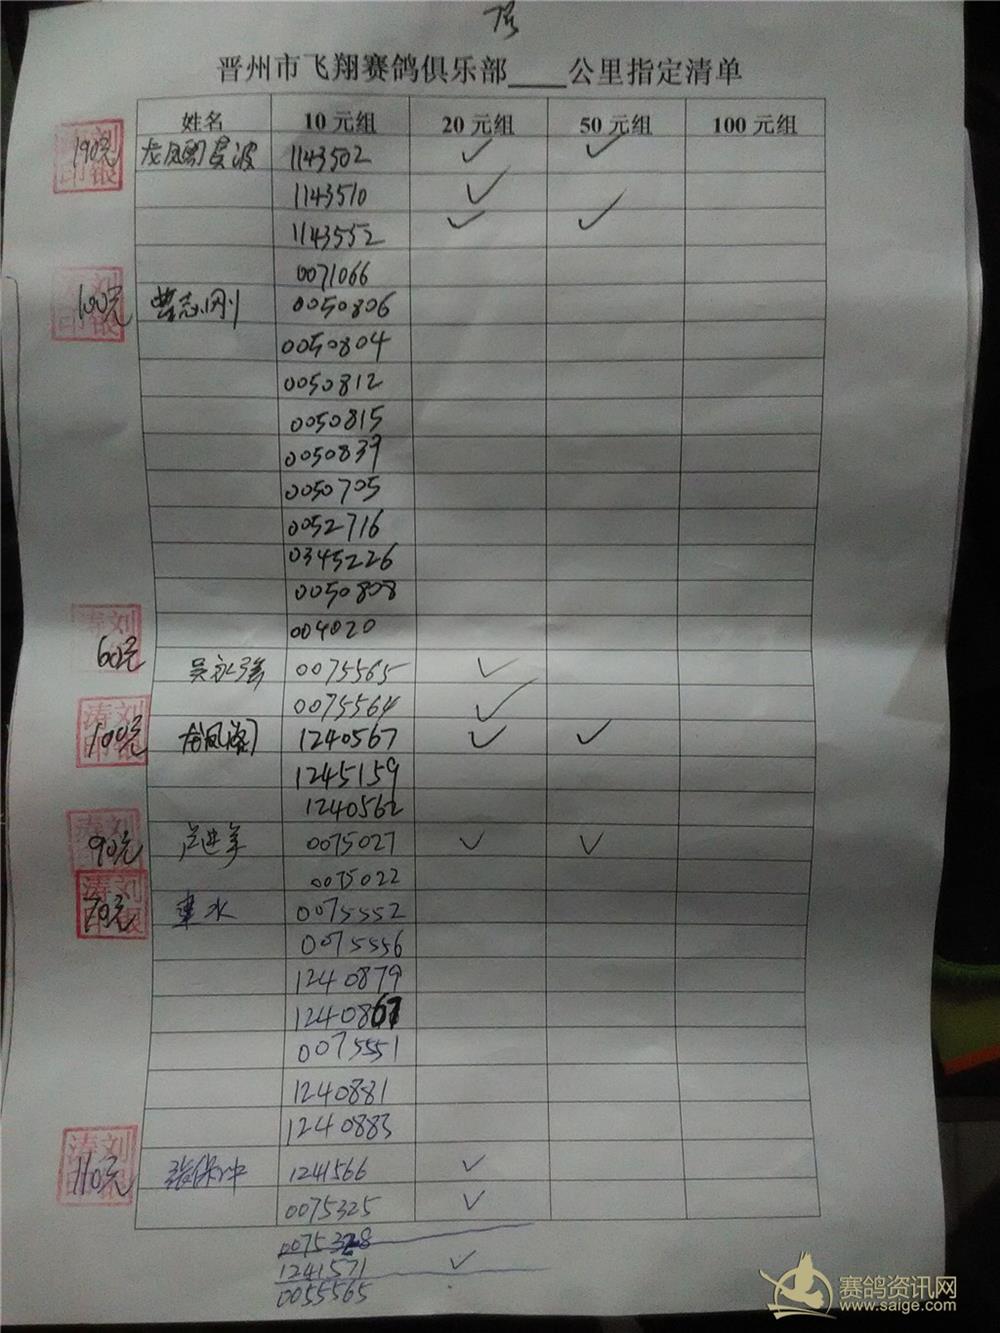 晋州市飞翔赛鸽俱乐部____公里指定清单
姓名 10元组 20元组 50元组 100元组
190元 龙凤阁吴波 1143502 ✓ ✓
1143510 ✓
1143552 ✓ ✓
0071066
100元 曹志刚 0050806
0050804
0050812
0050815
0050839
0050705
0052716
0345226
0050808
004020
60元 吴永强 0075565 ✓
0075564 ✓
100元 龙凤阁 1240567 ✓ ✓
1245159
1240562
90元 0075027 ✓ ✓
0075022
70元 0075552
0075556
1240879
1240867
0075551
1240881
1240883
110元 张保冲 1241566 ✓
0075325 ✓
0075328
1241571 ✓
0055565
赛鸽资讯网
www.saige.com